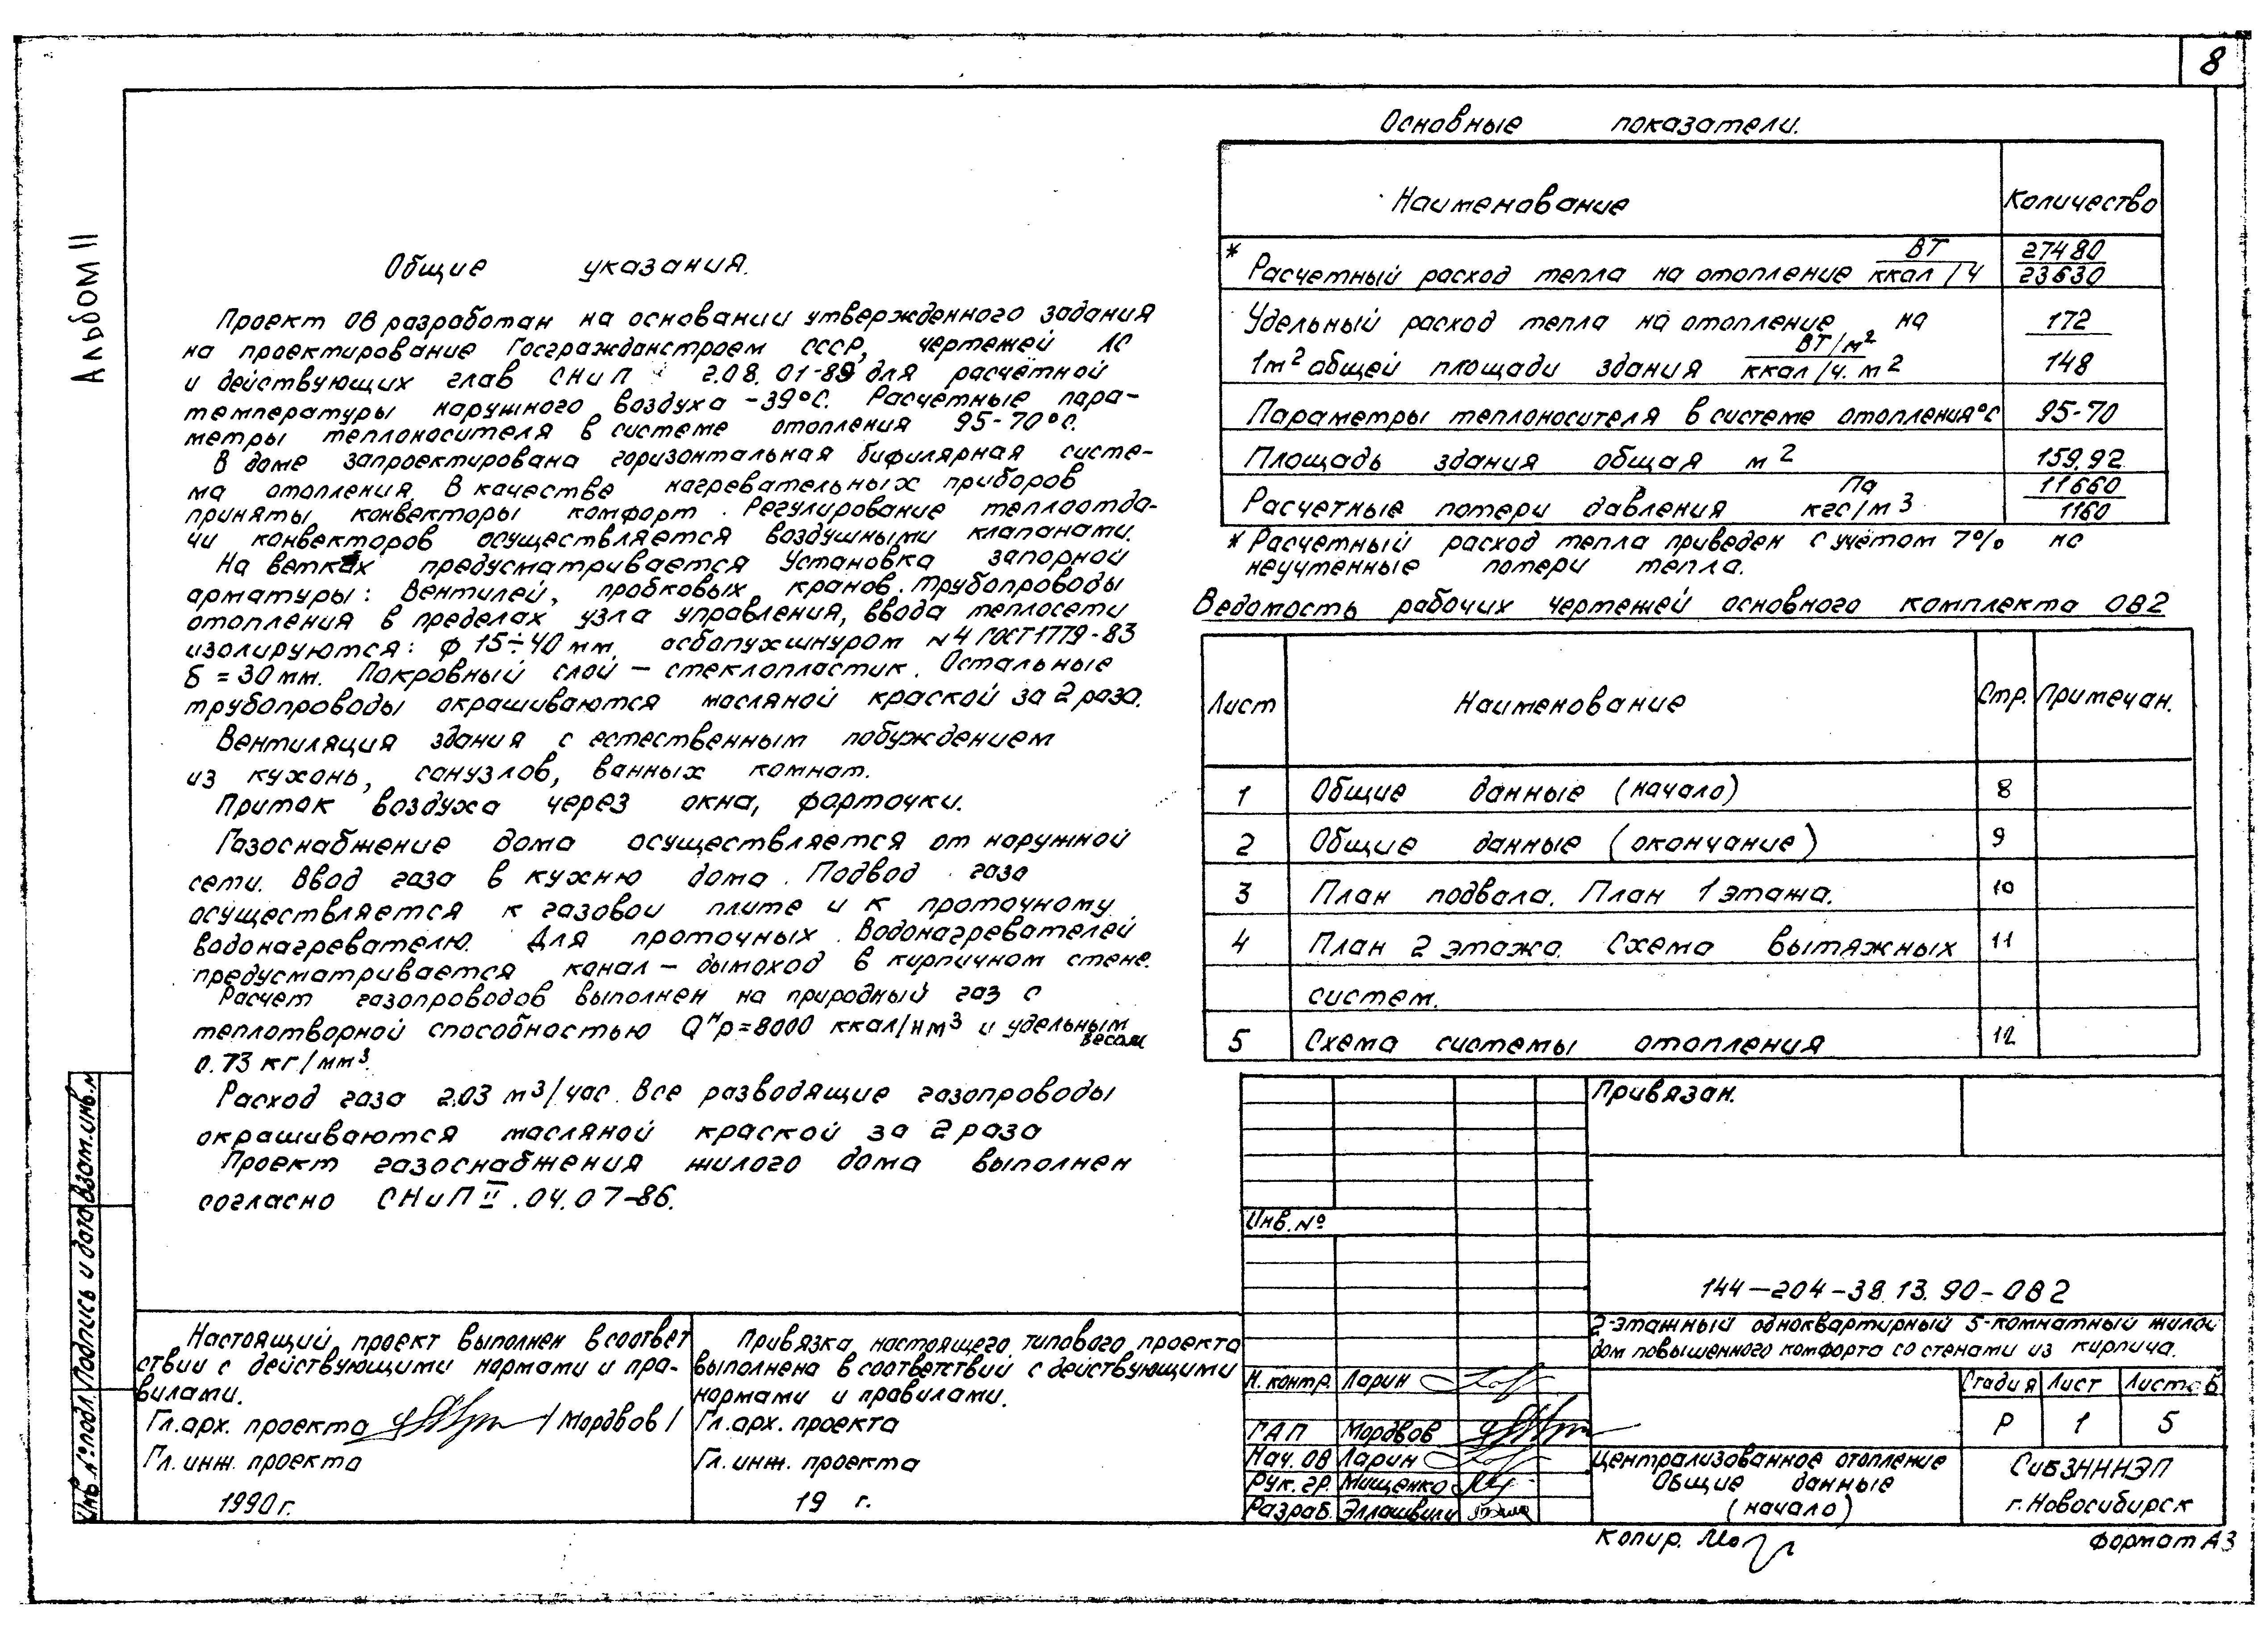 8
Альбом II
Общие указания.
Проект ОВ разработан на основании утвержденного задания
на проектирование Госгражданстроем СССР, чертежей АС
и действующих глав СНиП 2.08.01-89 для расчётной
температуры наружного воздуха -39°С. Расчётные пара-
метры теплоносителя в системе отопления 95-70°С.
В доме запроектирована горизонтальная бифилярная систе-
ма отопления. В качестве нагревательных приборов
приняты конвекторы комфорт. Регулирование теплоотда-
чи конвекторов осуществляется воздушными клапанами.
На ветках предусматривается установка запорной
арматуры: вентилей, пробковых кранов. Трубопроводы
отопления в пределах узла управления, ввода теплосети
изолируются: ф 15÷40 мм, асбопухшнуром N4 ГОСТ 1779-83
δ = 30 мм. Покровный слой — стеклопластик. Остальные
трубопроводы окрашиваются масляной краской за 2 раза.
Вентиляция здания с естественным побуждением
из кухонь, санузлов, ванных комнат.
Приток воздуха через окна, форточки.
Газоснабжение дома осуществляется от наружной
сети. Ввод газа в кухню дома. Подвод газа
осуществляется к газовой плите и к проточному
водонагревателю. Для проточных водонагревателей
предусматривается канал — дымоход в кирпичном стене.
Расчет газопроводов выполнен на природный газ с
теплотворной способностью Qнр=8000 ккал/нм3 и удельным
весом
0.73 кг/мм3.
Расход газа 2.03 м3/час. Все разводящие газопроводы
окрашиваются масляной краской за 2 раза
Проект газоснабжения жилого дома выполнен
согласно СНиП II.04.07-86.
Основные показатели.
Наименование Количество
* Расчетный расход тепла на отопление ВТ 27480
ккал/ч 23630
Удельный расход тепла на отопление на 172
1м2 общей площади здания ВТ/м2 ккал/ч.м2 148
Параметры теплоносителя в системе отопления°С 95-70
Площадь здания общая м2 159.92
Расчетные потери давления Па 11660
кгс/м3 1160
* Расчетный расход тепла приведен с учётом 7% на
неучтенные потери тепла.
Ведомость рабочих чертежей основного комплекта ОВ2
Лист Наименование Стр. Примечан.
1 Общие данные (начало) 8
2 Общие данные (окончание) 9
3 План подвала. План 1 этажа. 10
4 План 2 этажа. Схема вытяжных 11
систем.
5 Схема системы отопления 12
Привязан.
Инв. №
144-204-38.13.90-ОВ2
2-этажный одноквартирный 5-комнатный жилой
дом повышенного комфорта со стенами из кирпича.
Н.контр. Ларин
ГАП Мордвов
Нач. ОВ Ларин
Рук. гр. Мищенко
Разраб. Эллашвили
Стадия Лист Листов
Р 1 5
Централизованное отопление
Общие данные
(начало)
СибЗНИИЭП
г. Новосибирск
Копир.
Формат А3
Настоящий проект выполнен в соответ
ствии с действующими нормами и пра-
вилами.
Гл. арх. проекта /Мордвов/
Гл. инж. проекта
1990 г.
Привязка настоящего типового проекта
выполнена в соответствий с действующими
нормами и правилами.
Гл. арх. проекта
Гл. инж. проекта
19 г.
Инв. № подл. Подпись и дата Взам. инв. №